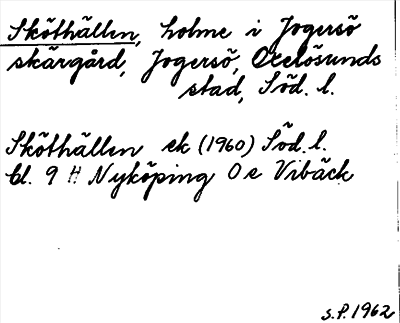 Sköthällen, holme i Jogersö
skärgård, Jogersö, Oxelösunds
stad, Söd. l.
Sköthällen ek (1960) Söd. l.
bl. 9 H Nyköping Oe Vibäck
S.P. 1962